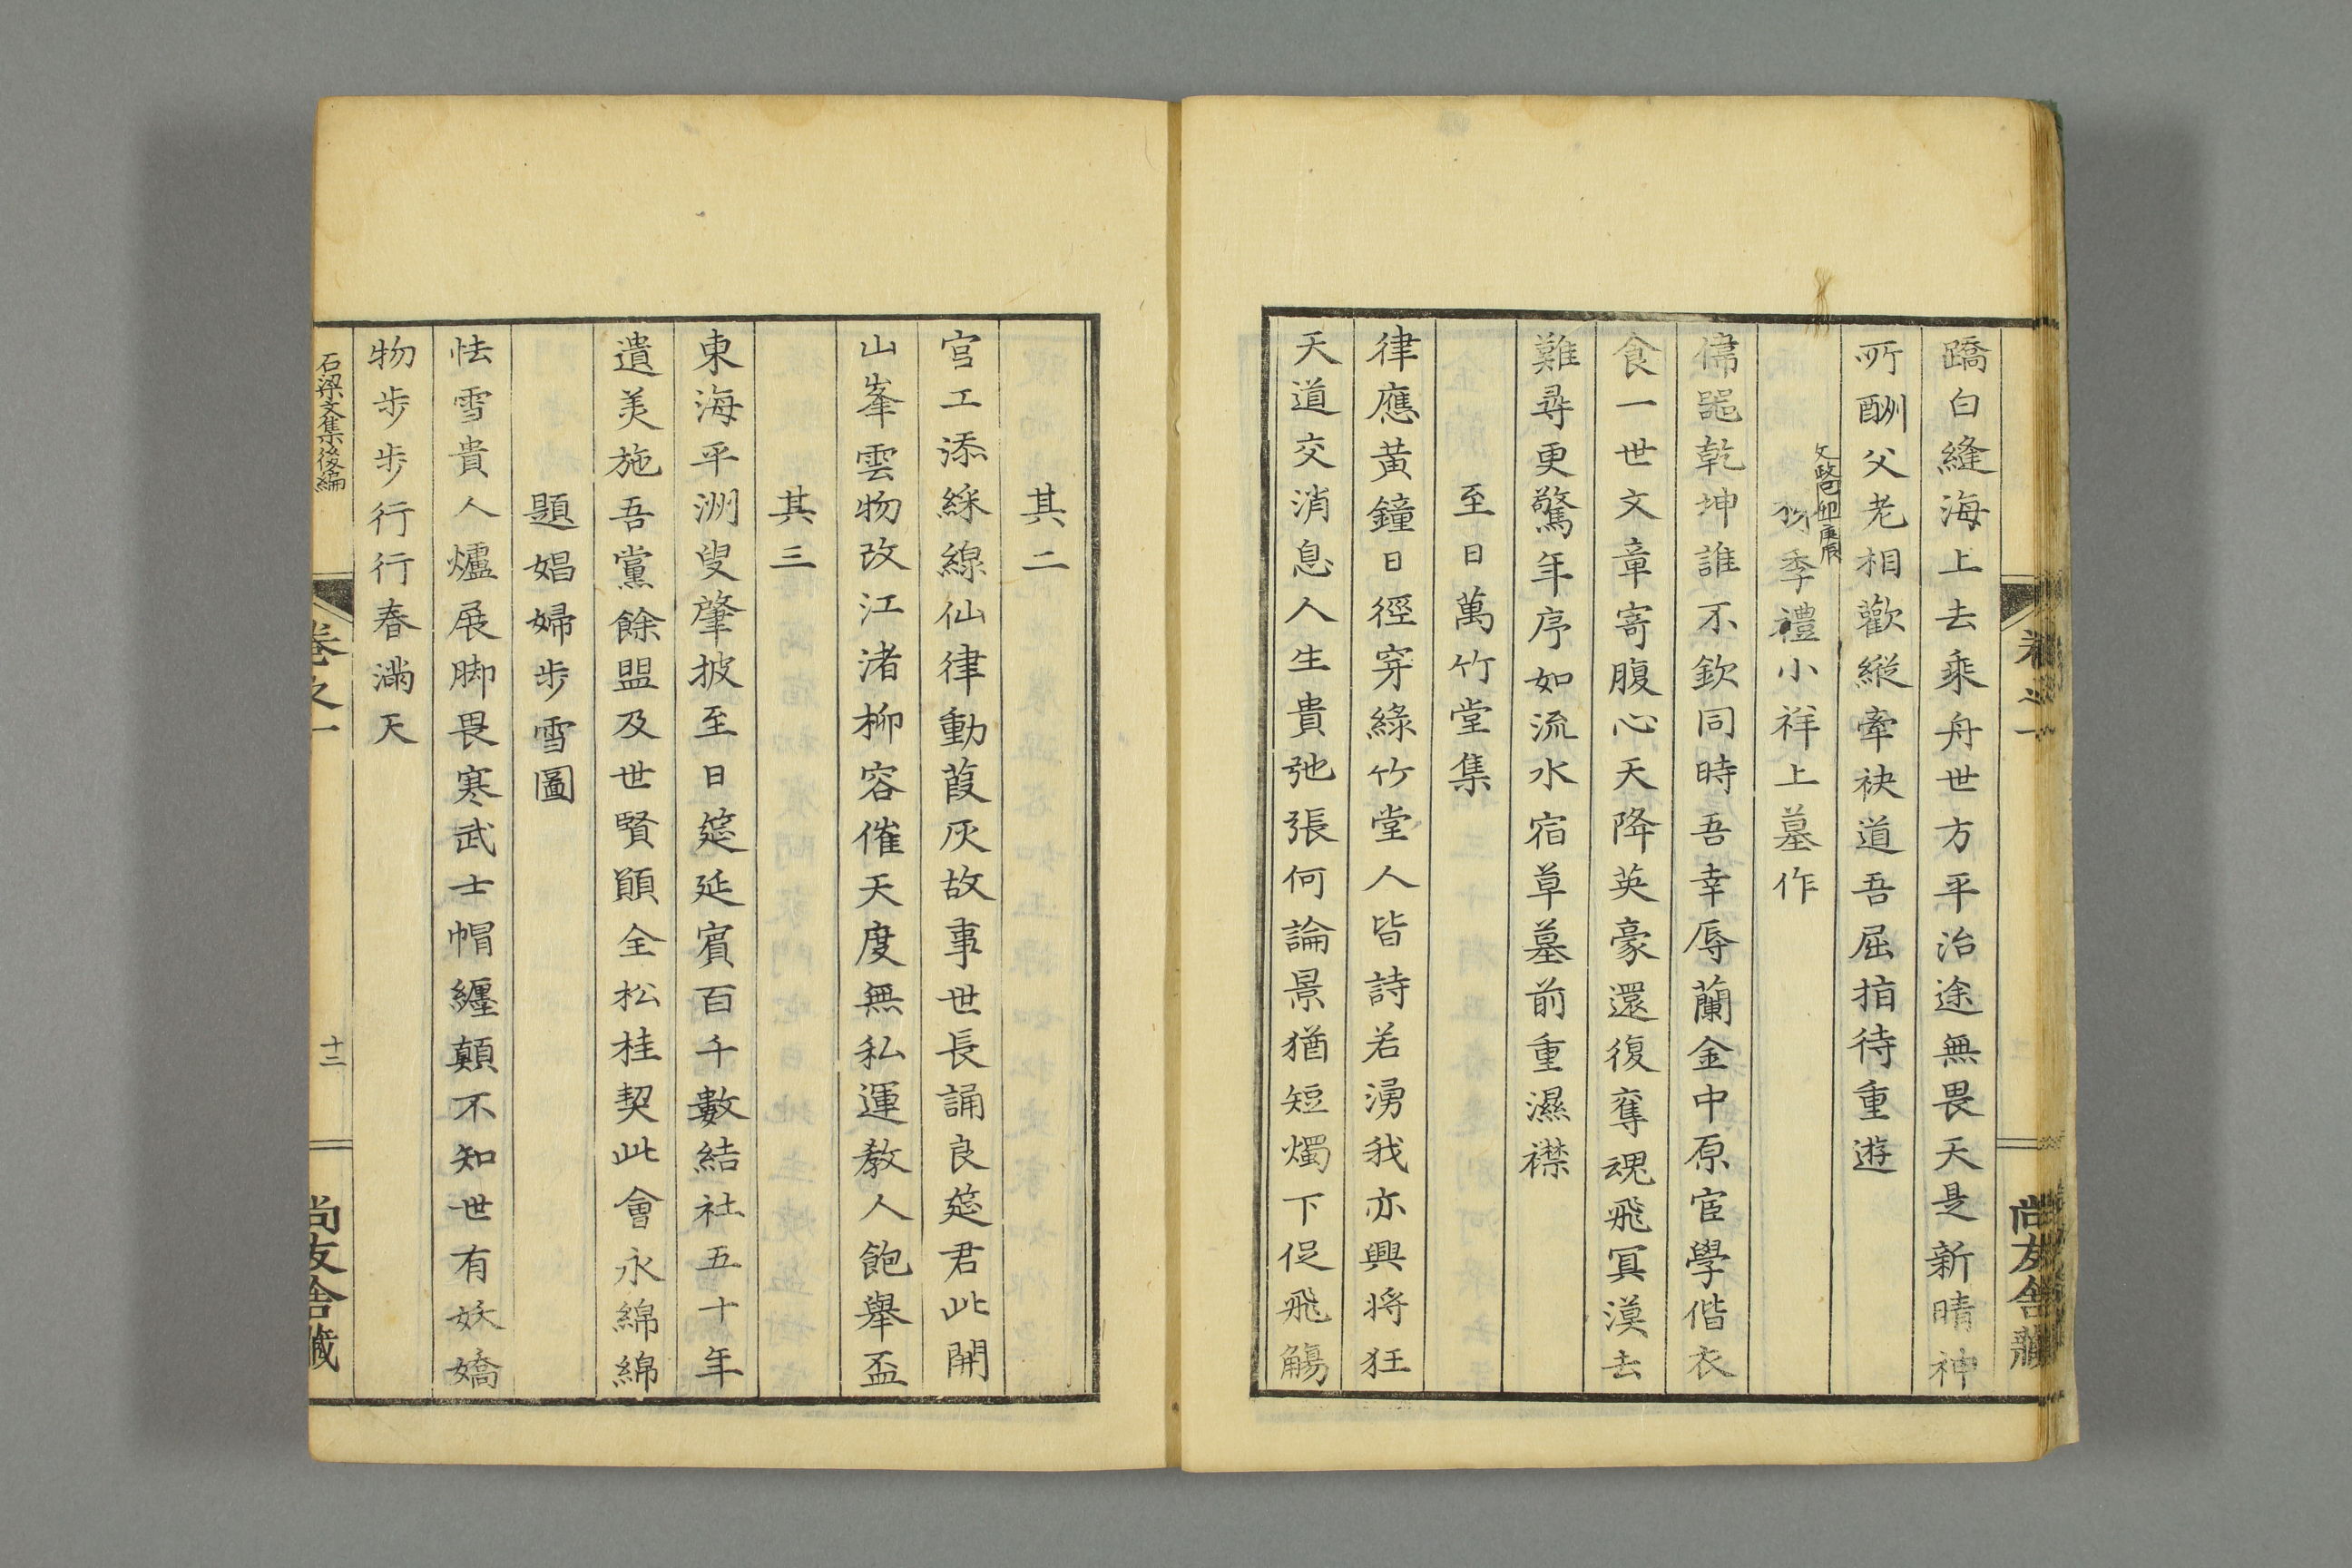 蹻白縫海上去乘舟世方平治途無畏天是新晴神
所酬父老相歡縱牽袂道吾屈指待重遊
季禮小祥上墓作
偉器乾坤誰不欽同時吾幸辱蘭金中原宦學偕衣
食一世文章寄腹心天降英豪還復奪魂飛冥漠去
難尋更驚年序如流水宿草墓前重濕襟
至日萬竹堂集
律應黃鐘日徑穿綠竹堂人皆詩若湧我亦興將狂
天道交消息人生貴弛張何論景猶短燭下促飛觴
其二
宮工添綵線仙律動葭灰故事世長誦良筵君此開
山峯雲物改江渚柳容催天度無私運教人飽舉盃
其三
東海平洲叟肇披至日筵延賓百千數結社五十年
遺美施吾黨餘盟及世賢願全松桂契此會永綿綿
題娼婦步雪圖
怯雪貴人爐展脚畏寒武士帽纏顛不知世有妖嬌
物步步行行春滿天
石梁文集後編
卷之一
十二
尚友舍藏